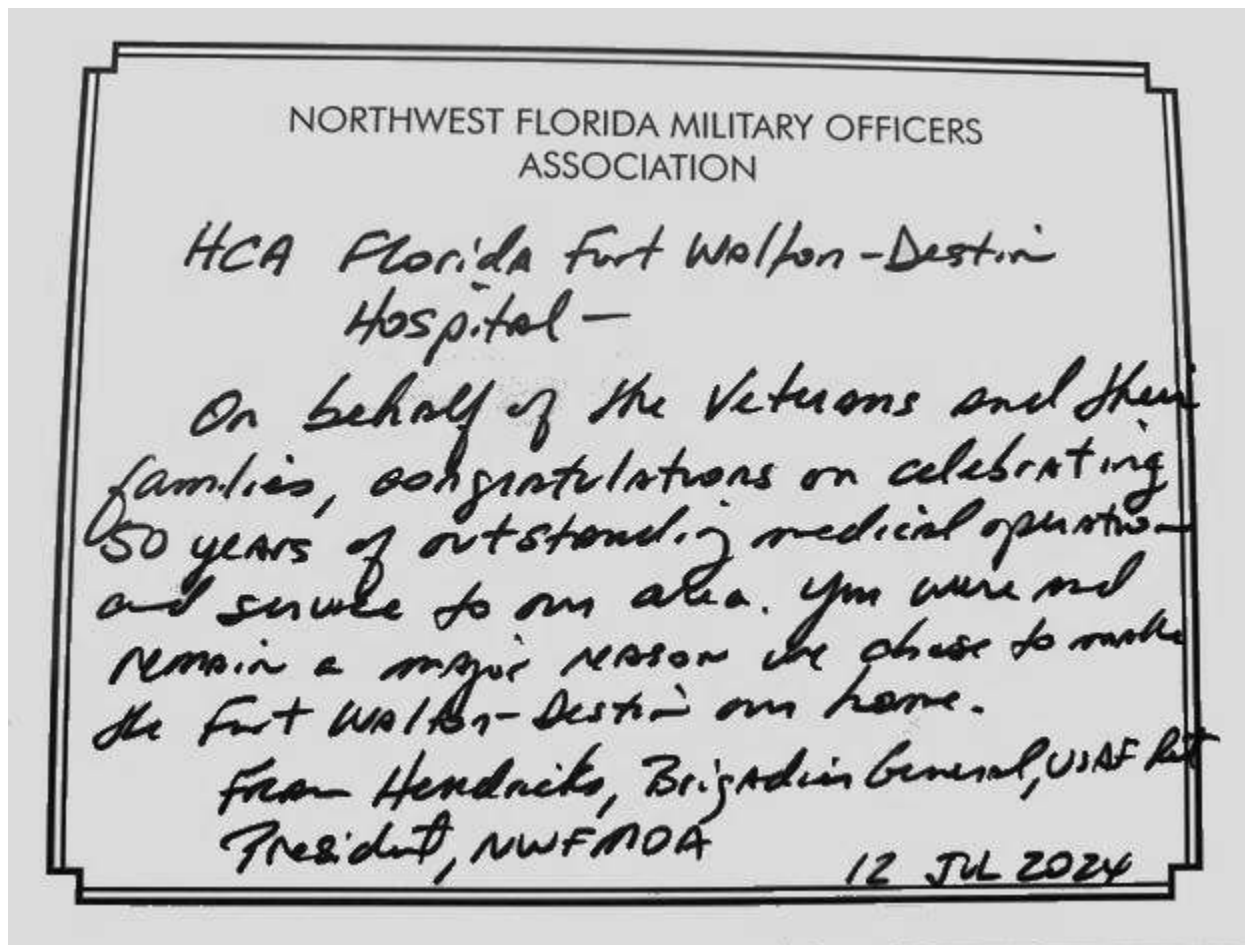 NORTHWEST FLORIDA MILITARY OFFICERS
ASSOCIATION
HCA Florida Fort Walton-Destin
Hospital -
On behalf of the Veterans and their
families, congratulations on celebrating
50 years of outstanding medical operation
and service to our area. You were and
remain a major reason we chose to make
the Fort Walton-Destin our home.
Fran Hendricks, Brigadier General, USAF Ret
President, NWFMOA
12 JUL 2024